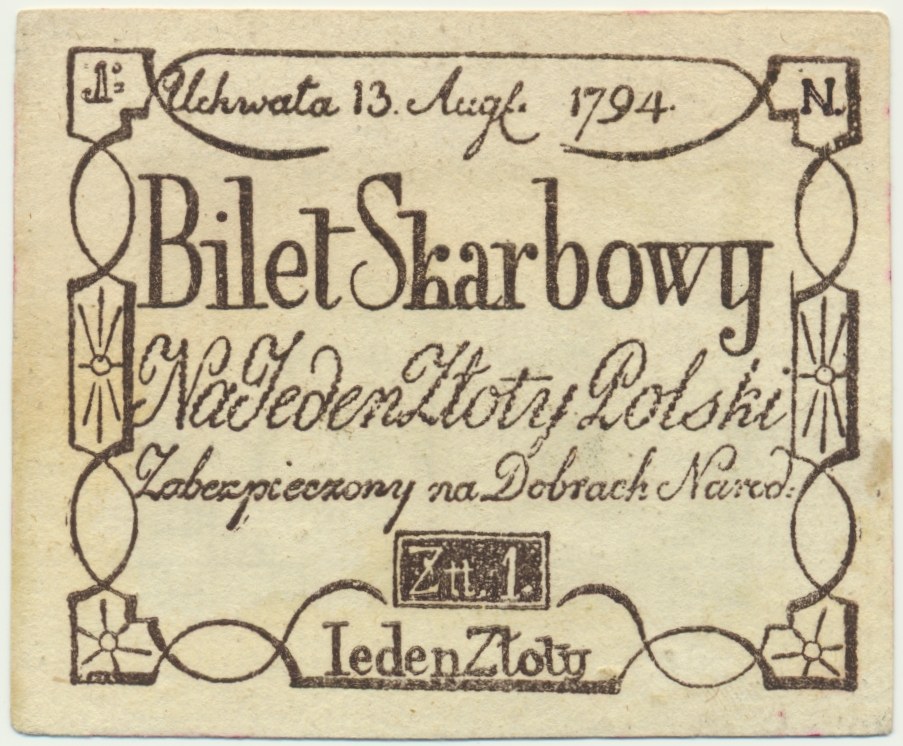 1º Uchwała 13. Augſ. 1794. N.
Bilet Skarbowy
Na Jeden Złoty Polski
Zabezpieczony na Dobrach Narod:
Złł. 1.
Ieden Złoty